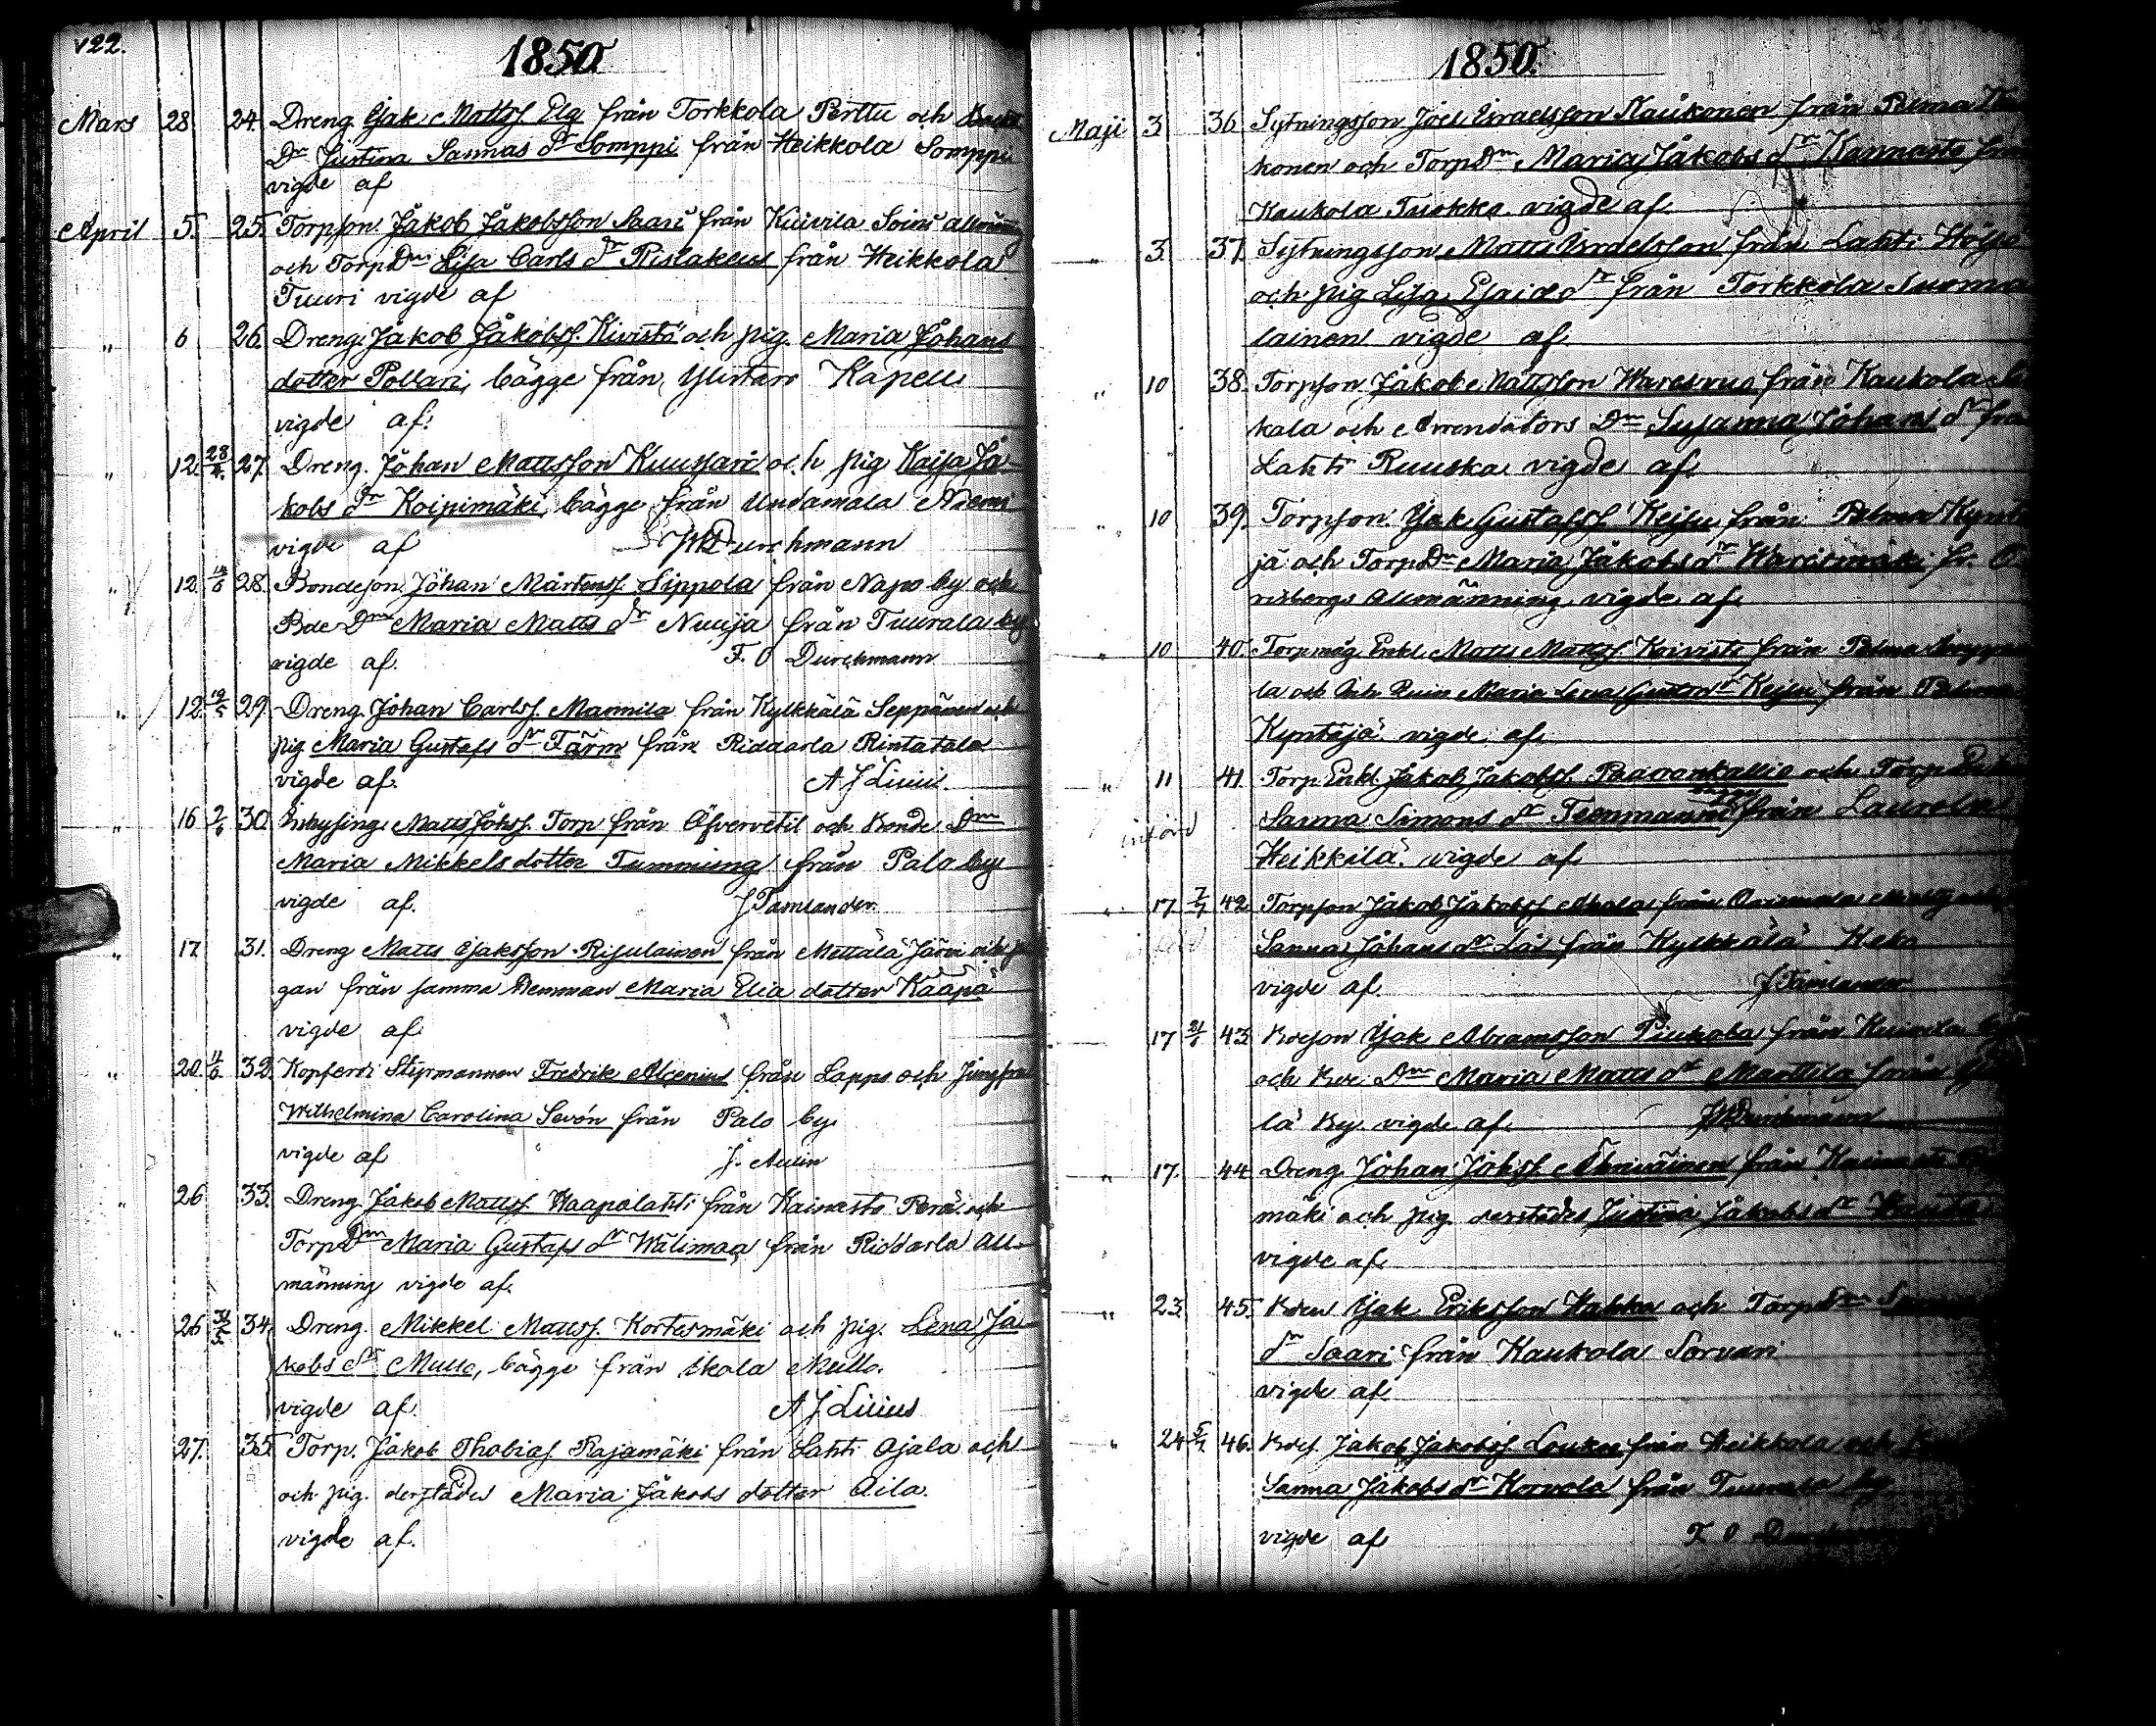 v22.
1850
Mars 28 24. Dreng Isak Mattsf. Elg från Torkkola Perttu och
Dr Justina Sannas dr Somppi från Heikkola Somppi
vigde af
April 5. 25. Torpson. Jåkob Jåkobsson Saari från Kuivila Soini allmänning
och Torp Dm Lisa Carls dr Rislakeus från Heikkola
Tuuri vigde af
" 6 26. Dreng. Jåkob Jåkobsf. Kivistö och pig. Maria Jöhans
dotter Pollari, bägge från Ylistaro Kapell
vigde af.
" 12. 28/4. 27. Dreng. Jöhan Mattsson Kuusari och pig Kaisa Jå-
kobs dr Koipimäki, bägge från Undamala Niemi
vigde af JWDurchmann
" 12. 14/6 28. Bondeson. Jöhan Mårtensf. Sippola från Napo by och
Bde Dm Maria Matts dr Nuuja från Tuurala by
vigde af. F. O Durchmann
" 12. 19/5 29. Dreng. Jöhan Carlsf. Mannila från Kylkkälä Seppänen och
pig Maria Gustafs dr Färm från Riddarla Rintatalo
vigde af. A J Liuus.
" 16 2/6 30. Inhysing. Matts Jöhsf. Torp från Öfvervetil och Bonde Dm
Maria Mikkels dotter Tumming från Palo by
vigde af. J Tamlander.
" 17 31. Dreng Matts Isaksson Risulainen från Mettälä Järvi och pi
gan från samma Hemman Maria Elia dotter Kääpä
vigde af
" 20. 11/6. 32. Kopferdi Styrmannen Fredrik Alcenius från Lappo och Jungfru
Wilhelmina Carolina Sevón från Palo by.
vigde af J. Aulin
" 26 33. Dreng. Jåkob Mattsf. Haapalahti från Kainasto Perä och
Torp Dm Maria Gustafs dr Wälimaa från Riddarla all-
männing vigde af.
" 26 31/5 34. Dreng. Mikkel Mattsf. Kortesmäki och pig. Lena Jå-
kobs dr Mullo, bägge från Ikola Mullo.
vigde af. A J Liuus
27. 35. Torp. Jåkob Thobiasf. Rajamäki från Lahti Ojala och
och pig. derstädes Maria Jåkobs dotter Aila.
vigde af.
1850.
Maji 3 36. Sytningsson Joel Israelsson Kaukonen från Pelma
konen och Torp Dm. Maria Jåkobs dr Kannasto från
Kaukola Tuokko. vigde af.
" 3 37. Sytningsson Matts Israelsson från Lahti
och pig Lisa Esaiæ dr från Torkkola Suoma
lainen vigde af.
" 10 38. Torpson Jåkob Mattsson Waresvuo från Kaukola
kala och Arrendators Dm Susanna Jöhans dr från
Lahti Ruuska vigde af.
" 10 39. Torpson. Isak Gustafsf. Keisu från Pelma Kyntä
jä och Torp Dm Maria Jåkobs dr Waresmäki fr.
risbergs Allmänning. vigde af.
" 10 40. Torpmåg Enkl. Matts Mattsf. Koivisto från Pelma
la och Enk. Maria Lena Gustafs dr Keisu från Pelma
Kyntäjä vigde af.
" 11 41. Torp Enkl. Jåkob Jåkobsf. Paavonkallio och Torp
Sanna Simons dr Teenmanni bägge från Laurola
införd
Heikkilä. vigde af
" 17. 7/7 42. Torpson Jåkob Jåkobsf. Ahola från
Sanna Jöhans dr från Kylkkälä
vigde af. J Tamlander
" 17 21/6 43. Bdeson Isak Abramsson från
och Bde Dm Maria Matts dr Marttila från
lä by. vigde af. JWDurchmann
" 17. 44. Dreng Jöhan Jöhsf. från
mäki och pig. derstädes Justina Jåkobs dr
vigde af.
" 23. 45. Isak Eriksson Hakka och Torp Dm
dr Saari från Kaukola Sorvari
vigde af
" 24 5/7 46. Bdes. Jåkob Jåkobsf. Louko från Heikkola och
Sanna Jåkobs dr från Tuurala by
vigde af F. O